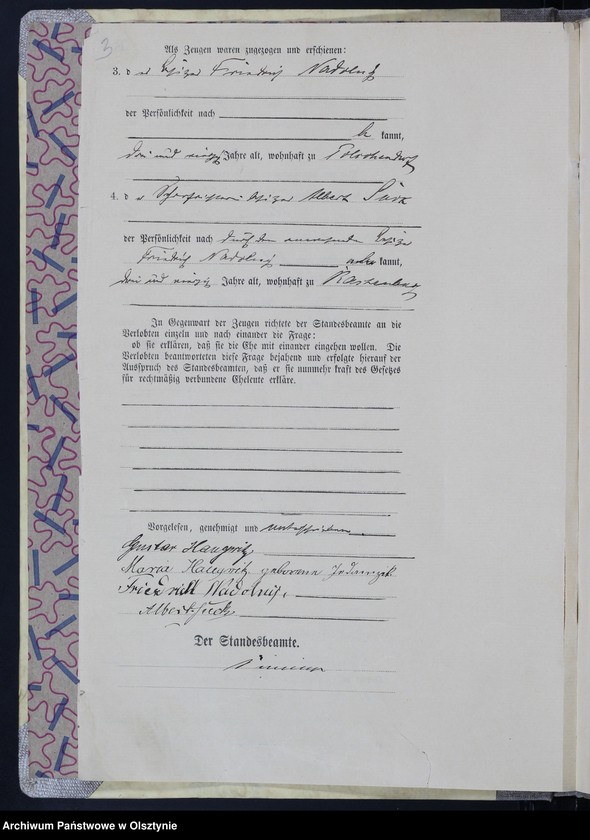 3
Als Zeugen waren zugezogen und erschienen:
3. d er Besitzer Friedrich Nadolny
der Persönlichkeit nach
be kannt,
drei und vierzig Jahre alt, wohnhaft zu
4. d er Besitzer Albert
der Persönlichkeit nach durch den anwesenden Besitzer
Friedrich Nadolny aner kannt,
drei und vierzig Jahre alt, wohnhaft zu Rastenburg
In Gegenwart der Zeugen richtete der Standesbeamte an die
Verlobten einzeln und nach einander die Frage:
ob sie erklären, daß sie die Ehe mit einander eingehen wollen. Die
Verlobten beantworteten diese Frage bejahend und erfolgte hierauf der
Ausspruch des Standesbeamten, daß er sie nunmehr kraft des Gesetzes
für rechtmäßig verbundene Eheleute erkläre.
Vorgelesen, genehmigt und unterschrieben
Gustav Haugwitz
Maria Haugwitz geborene
Friedrich Nadolny.
Albert
Der Standesbeamte.
Archiwum Państwowe w Olsztynie